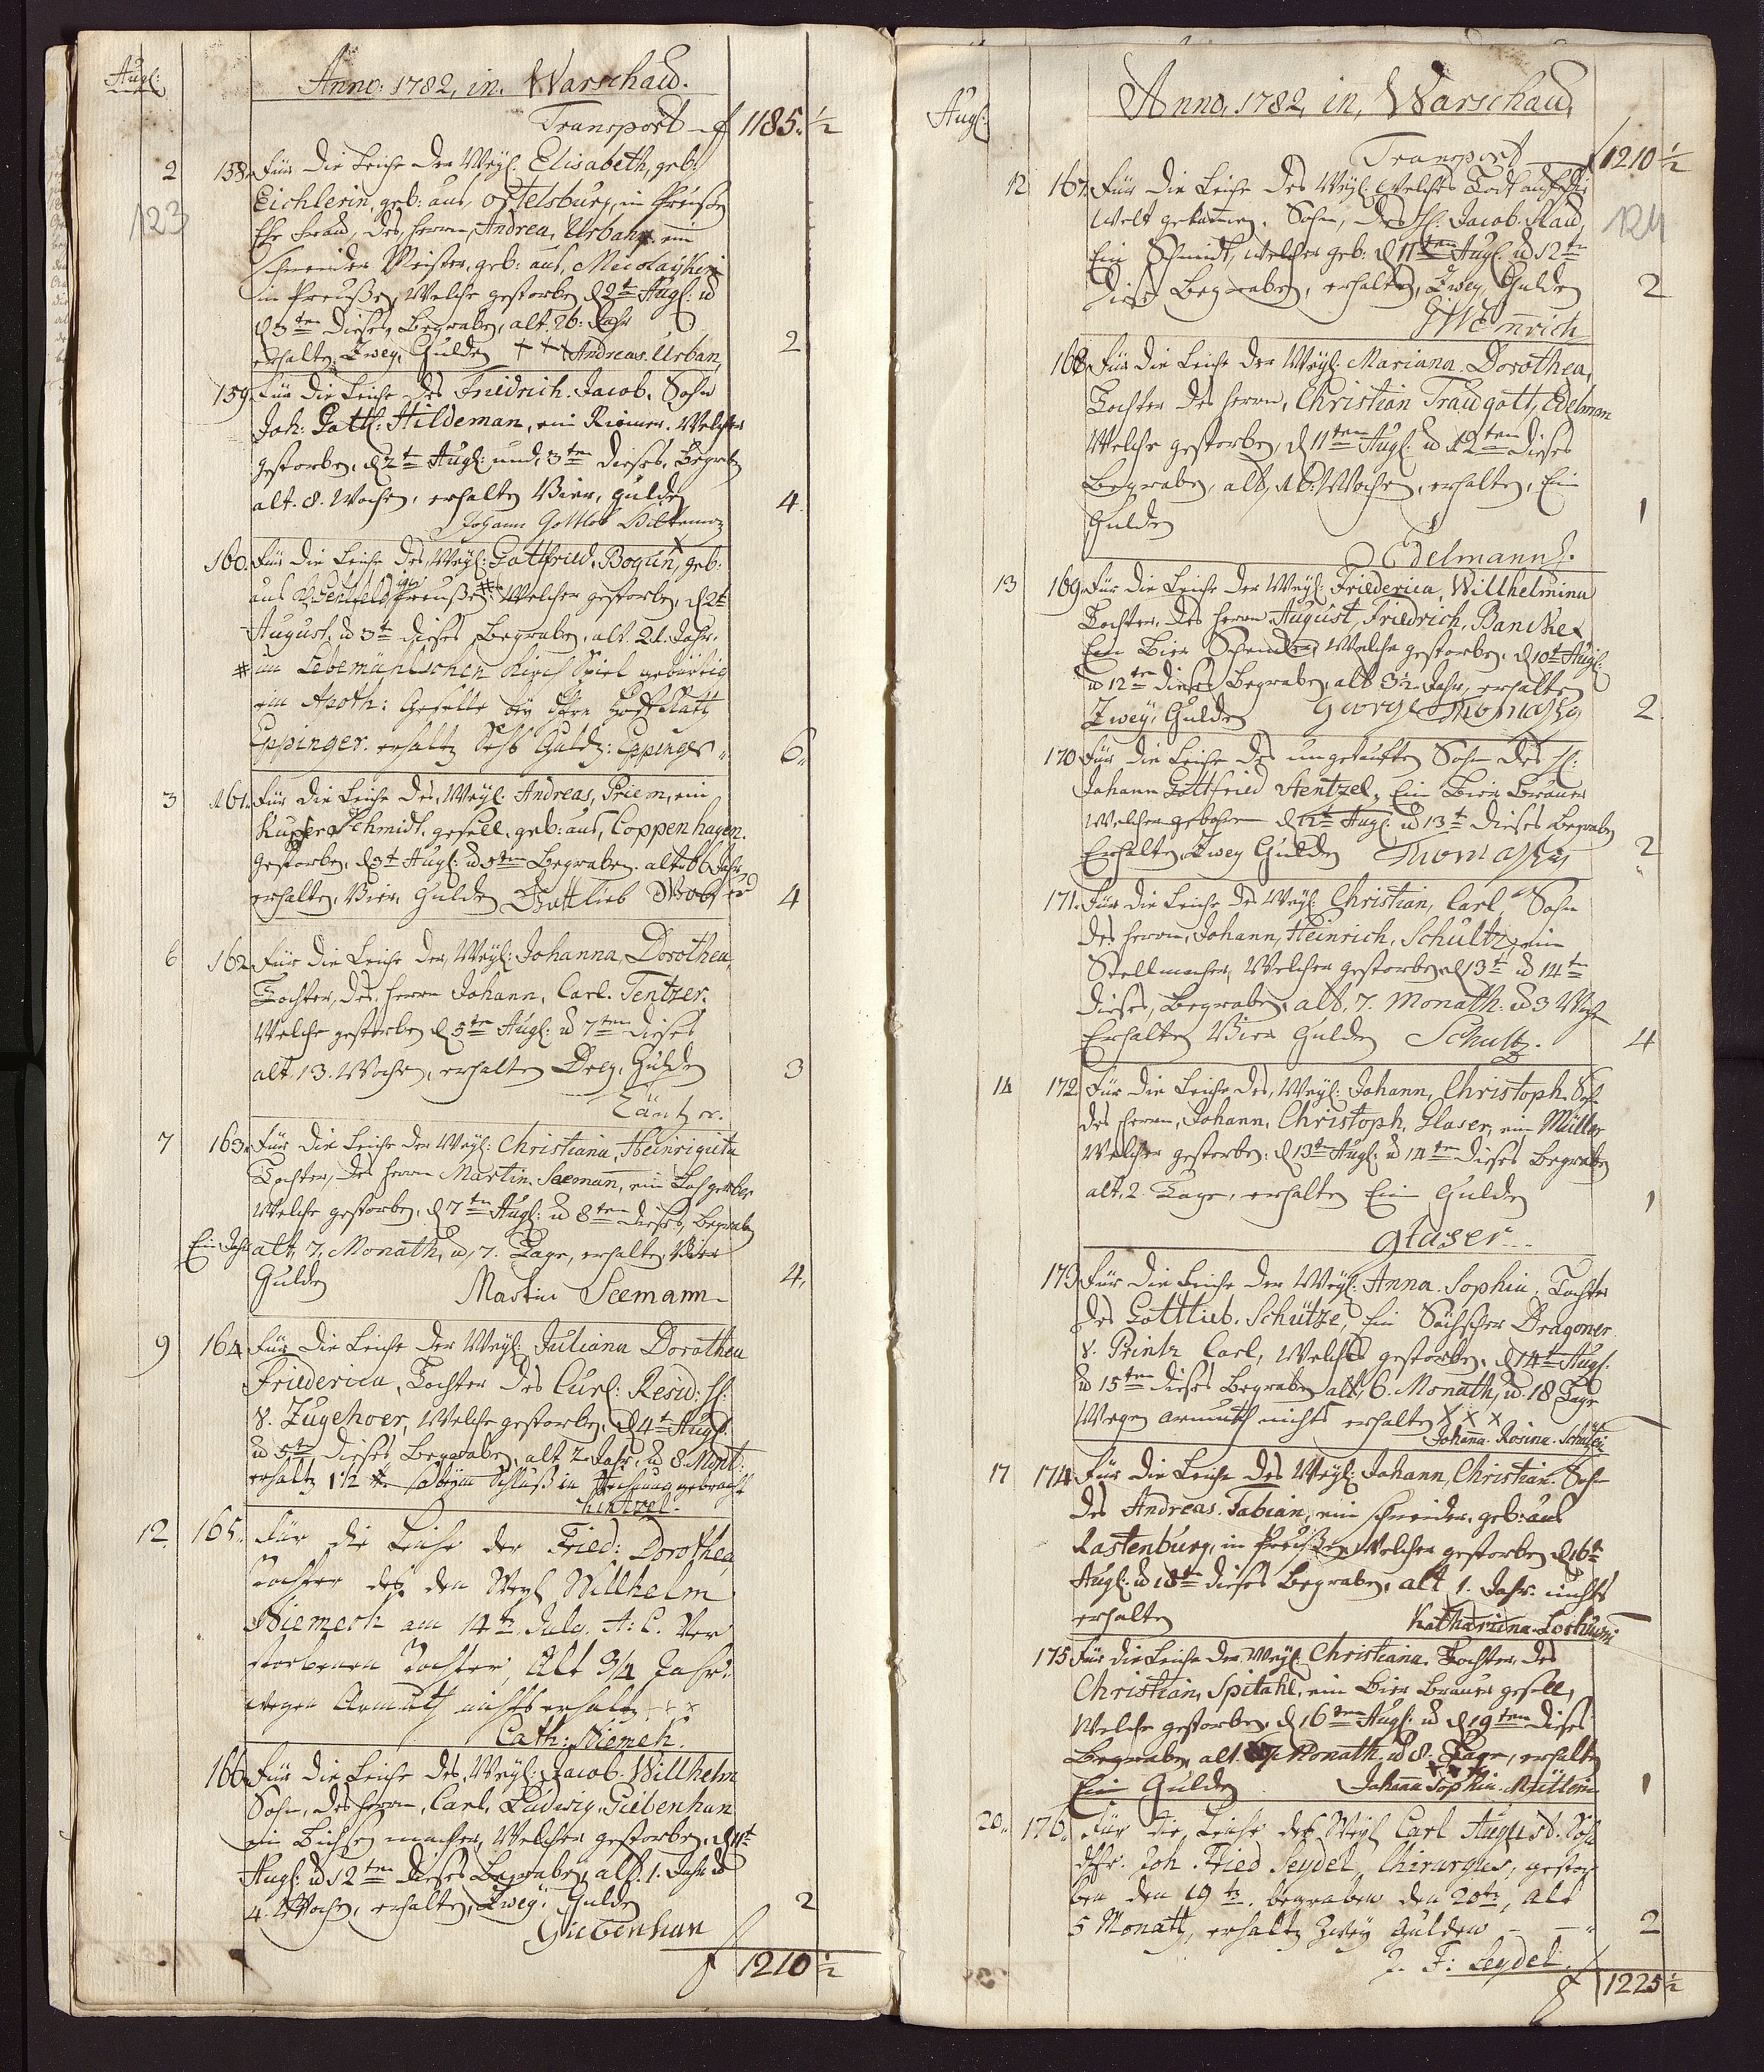 Augl:
Anno: 1782, in, Warschau.
Transport f 1185. ½
2 158. Für die Leiche der Weyl: Elisabeth, geb:
123
Eichlerin, geb: aus, Ortelsburg, in Preußen
Ehe Frau, des, Herrn, Andrea, Urban, ein
Schneider Meister, geb: aus, Nicolayken
in Preußen, Welche gestorben d 2t Augl: u
d 3ten dieses Begraben, alt. 26. Jahr
erhalten, Zwey, Gulden +++ Andreas. Urban, 2
159. Für die Leiche des Friedrich. Jacob. Sohn
Joh: Gottl: Hildeman, ein Riemer. Welcher
gestorben. d 2tn Augl: und, 3tn dieses, Begraben
alt. 8. Wochen, erhalten Vier, Gulden 4.
Johann Gottlob
160. Für die Leiche des, Weyl: Gottfried. Bogun, geb:
aus in Preußen # Welcher gestorben, d 2t
August, u 3tn dieses Begraben, alt. 21. Jahr.
# im Kirch Spiel gebürtig
ein Apoth: Geselle bey Herrn
Eppinger. erhaltn Sechs Guldn: Eppinger 6.
3 161. Für die Leiche des, Weyl: Andreas, Priem, ein
Kupfer Schmidt, gesell. geb: aus, Coppenhagen.
gestorben, d 3t Augl: u 5ten Begraben. alt 66 Jahr
erhalten, Vier, Gulden Gottlieb 4
6 162. Für die Leiche der, Weyl: Johanna, Dorothea,
Tochter, des, Herrn Johann, Carl. Tentzer.
Welche gestorben d 5tn Augl: u 7ten dieses
alt. 13. Wochen, erhalten Drey, Gulden 3
Täntzer.
7 163. Für die Leiche der Weyl: Christiana, Heinriguta
Tochter, des Herrn Martin. Seeman, ein Loh gerber
Welche gestorben, d 7tn Augl: u 8ten dieses, Begraben
Ein Jahr alt, 7. Monath, u, 7. Tage, erhalten, Vier
Gulden Martin Seemann 4,
9 164 Für die Leiche der Weyl: Juliana Dorothea
Friederica, Tochter des Curl: Resid: H:
v. Zugehoer, Welche gestorben, d 4t Augl:
u 5tn dieses Begraben, alt 2 Jahr, u 8. Mont:
erhaltn 1½ # beym Schluß in Rechnung gebracht
Hintzel.
12 165. Für die Leiche der Fried: Dorothea,
Tochter des den Weyl Willhelm
Niemeck am 14tn July. A: C. Ver
storbenen Tochter, Alt 3/4 Jahr.
wegen Armuth nichts erhaltn + + x
Cath: Niemek.
166 Für die Leiche des, Weyl: Jacob. Willhelm
Sohn, des Herrn, Carl, Ludwig, Giebenhan
ein Bichsen macher, Welcher gestorben, d 11t
Augl: u 12ten dieses Begraben, alt. 1. Jahr u
4. Wochen, erhalten, Zwey, Gulden 2
Giebenhan
f 1210 ½
Augl:
Anno, 1782, in, Warschau,
Transport f 1210 ½
12 167. Für die Leiche des Weyl: Welches Todt auf die
124
Welt gekommen. Sohn, des H: Jacob. Rau,
Ein Schmidt, welcher geb: d 11ten Augl: u 12tn
dieses Begraben, erhalten, Zwey Gulden 2
168 Für die Leiche der Weyl: Mariana. Dorothea,
Tochter des Herrn, Christian Traugott, Edelman
Welche gestorben, d 11ten Augl: u 12ten dieses
Begraben, alt, 16: Wochen, erhalten, Ein
Gulden 1
Edelmann.
13 169 Für die Leiche der Weyl: Friederica, Willhelmina
Tochter, des Herrn August, Friedrich, Bancke
Ein Bier Schencker, Welche gestorben, d 10t Augl:
u 12ten dieses Begraben, alt 3½ Jahr, erhalten
Zwey, Gulden George Thomassy 2
170 Für die Leiche des ungetauften Sohn des H:
Johann Gottfried Aentzel, Ein Bier Brauer
Welcher gebohren d 12t Augl: u 13t dieses Begraben
Erhalten Zwey Gulden Thomassy 2
171. Für die Leiche des Weyl: Christian, Carl, Sohn
des Herrn, Johann, Heinrich, Schultz, ein
Stellmacher, Welcher gestorben, d 13t u 14tn
dieses, Begraben, alt. 7. Monath. u 3 Woch
Erhalten Vier Gulden Schultz. 4
14 172 Für die Leiche des, Weyl: Johann, Christoph. Sohn
des Herrn, Johann. Christoph. Glaser, ein Müller
Welcher gestorben: d 13tn Augl: u 14ten dieses Begraben
alt, 2. Tage, erhalten Ein Gulden 1
glaser
173 Für die Leiche der Weyl: Anna. Sophia, Tochter
des Gottlieb. Schütze, Ein Sächscher Dragoner.
v. Printz Carl, Welches gestorben, d 14t Augl:
u 15ten dieses Begraben, alt, 6. Monath, u 18 Tage
Wegen armuth nichts erhalten X X X
Johanna. Rosina. Schützin
17 174 Für die Leiche des Weyl: Johann, Christian. Sohn
des Andreas. Fabian, ein Schneider, geb: aus
Rastenburg, in Preußen, Welcher gestorben d 16tn
Augl: u 18tn dieses Begraben, alt 1. Jahr nichts
erhalten Katharina
175 Für die Leiche der Weyl: Christiana, Tochter des
Christian, Spitahl, ein Bier Brauer gesell,
Welche gestorben, d 16ten Augl: u d 19ten dieses
Begraben, alt. 7 Monath, u 8. Tage, erhalten
Ein Gulden Johanna Sophia. Müllerin 1
20. 176. Für die Leiche des Weyl Carl August. Sohn
d Hr. Joh. Fried Seydel, Chirurgus, gestor
ben den 19tn. begraben den 20tn, alt
5 Monath, erhaltn Zwey Gulden 2
J. F: Seydel.
f 1225 ½